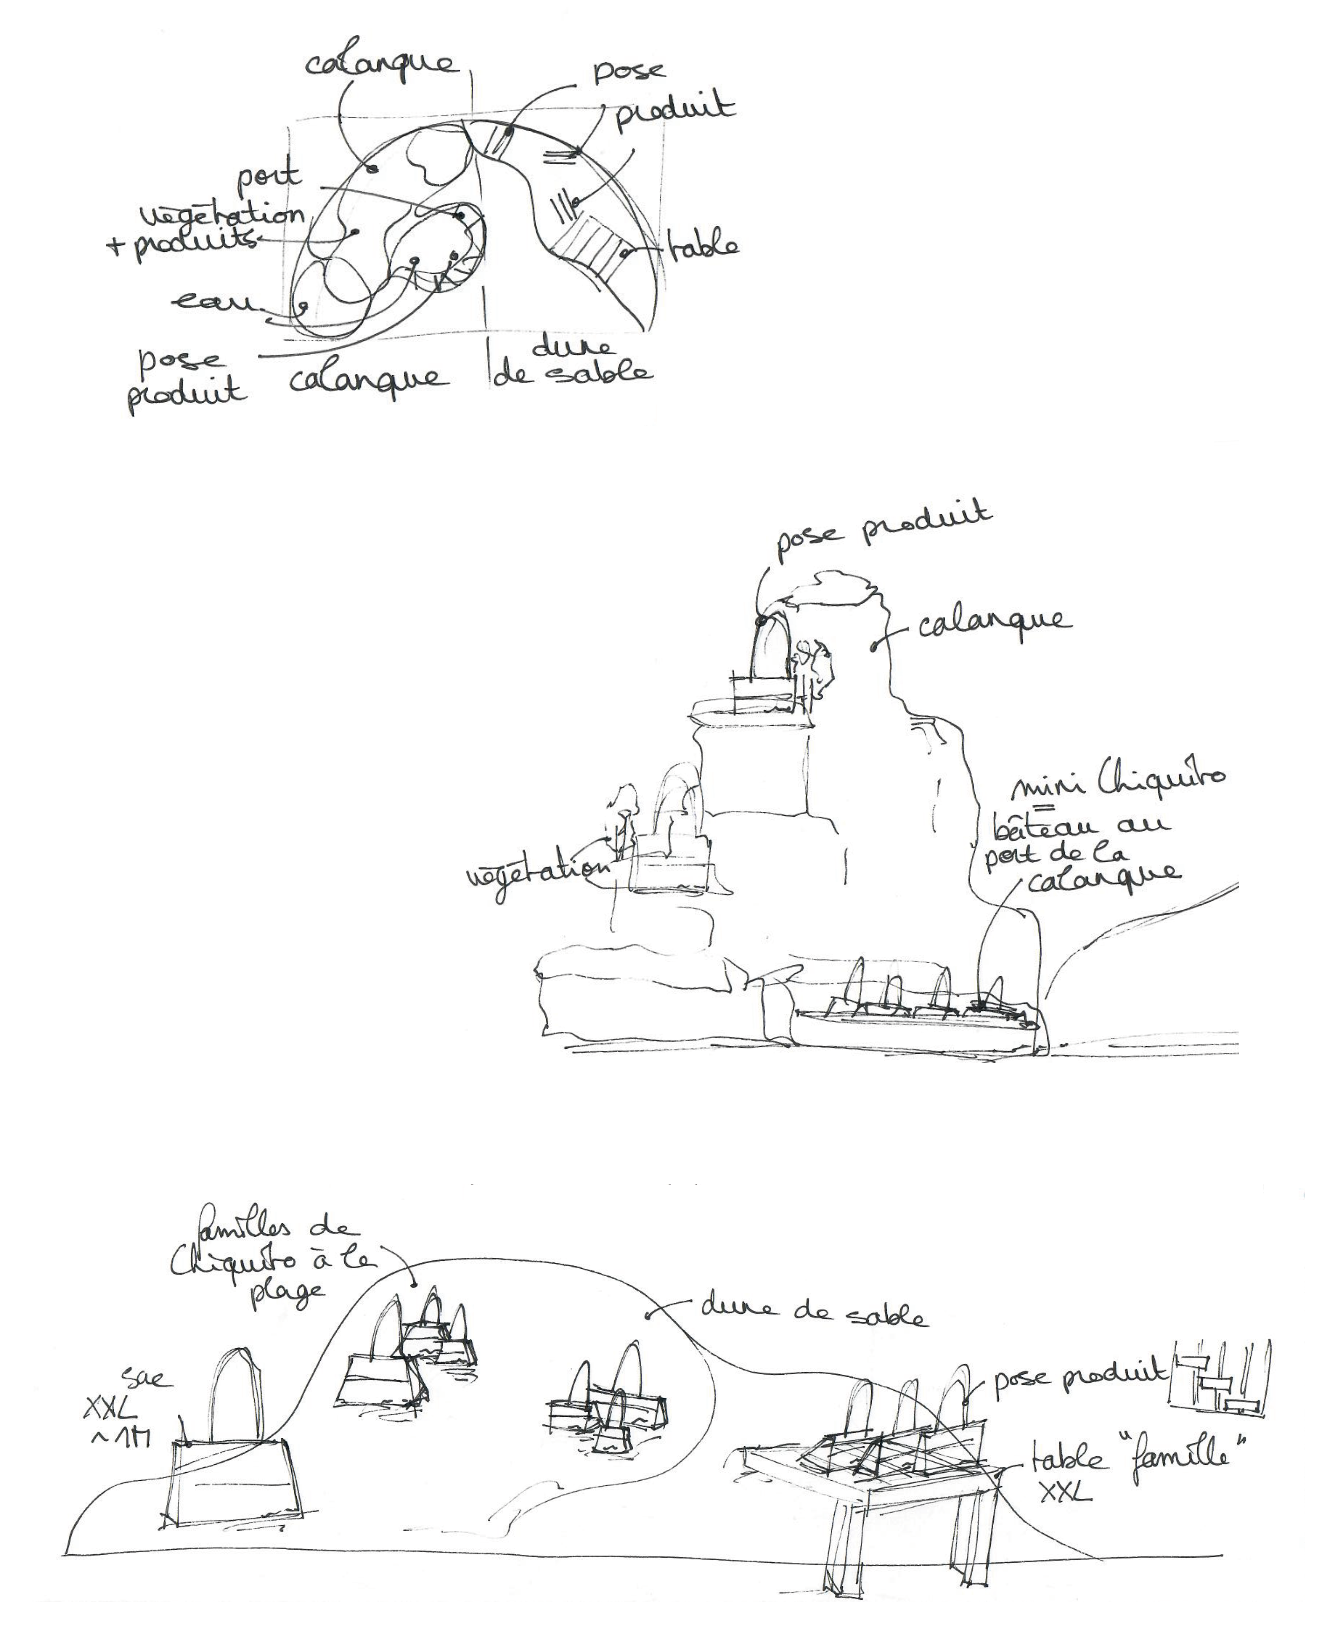 calanque
pose
produit
port
végétation
+ produits
table
eau
pose
produit
calanque
dune
de sable
pose produit
calanque
mini Chiquito
=
bâteau au
port de la
calanque
végétation
familles de
Chiquito à la
plage
dune de sable
sac
XXL
~1M
pose produit
table "famille"
XXL